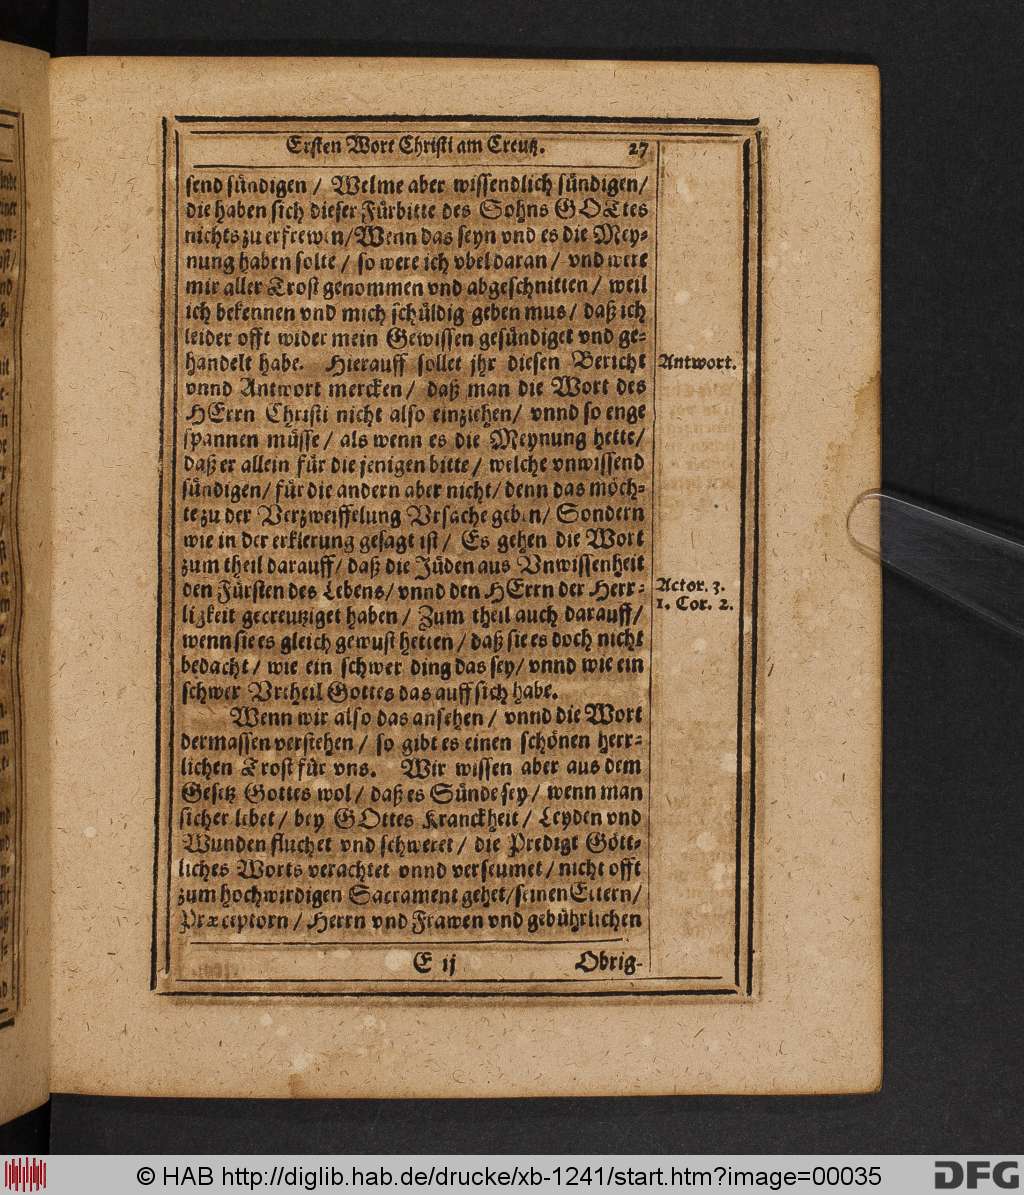 Ersten Wort Christi am Creutz. 27
send sündigen / Welme aber wissendlich sündigen/
die haben sich dieser Fürbitte des Sohns GOTtes
nichts zu erfrewen/Wenn das seyn vnd es die Mey-
nung haben solte / so were ich vbel daran / vnd were
mir aller Trost genommen vnd abgeschnitten / weil
ich bekennen vnd mich schüldig geben mus / daß ich
leider offt wider mein Gewissen gesündiget vnd ge-
handelt habe. Hierauff sollet jhr diesen Bericht
vnnd Antwort mercken / daß man die Wort des
HErrn Christi nicht also einziehen / vnnd so enge
spannen müsse / als wenn es die Meynung hette/
daß er allein für die jenigen bitte / welche vnwissend
sündigen / für die andern aber nicht / denn das möch-
te zu der Verzweiffelung Vrsache geben / Sondern
wie in der erklerung gesagt ist / Es gehen die Wort
zum theil darauff / daß die Jüden aus Vnwissenheit
den Fürsten des Lebens / vnnd den HErrn der Herr-
ligkeit gecreutziget haben / Zum theil auch darauff/
wenn sie es gleich gewust hetten / daß sie es doch nicht
bedacht / wie ein schwer ding das sey / vnnd wie ein
schwer Vrtheil Gottes das auff sich habe.
Wenn wir also das ansehen / vnnd die Wort
dermassen verstehen / so gibt es einen schönen herr-
lichen Trost für vns. Wir wissen aber aus dem
Gesetz Gottes wol / daß es Sünde sey / wenn man
sicher lebet / bey GOttes Kranckheit / Leyden vnd
Wunden fluchet vnd schweret / die Predigt Gött-
liches Worts verachtet vnnd verseumet / nicht offt
zum hochwirdigen Sacrament gehet / seinen Eltern /
Præceptorn / Herrn vnd Frawen vnd gebührlichen
E ij Obrig-
Antwort.
Actor. 3.
1. Cor. 2.
© HAB http://diglib.hab.de/drucke/xb-1241/start.htm?image=00035
DFG